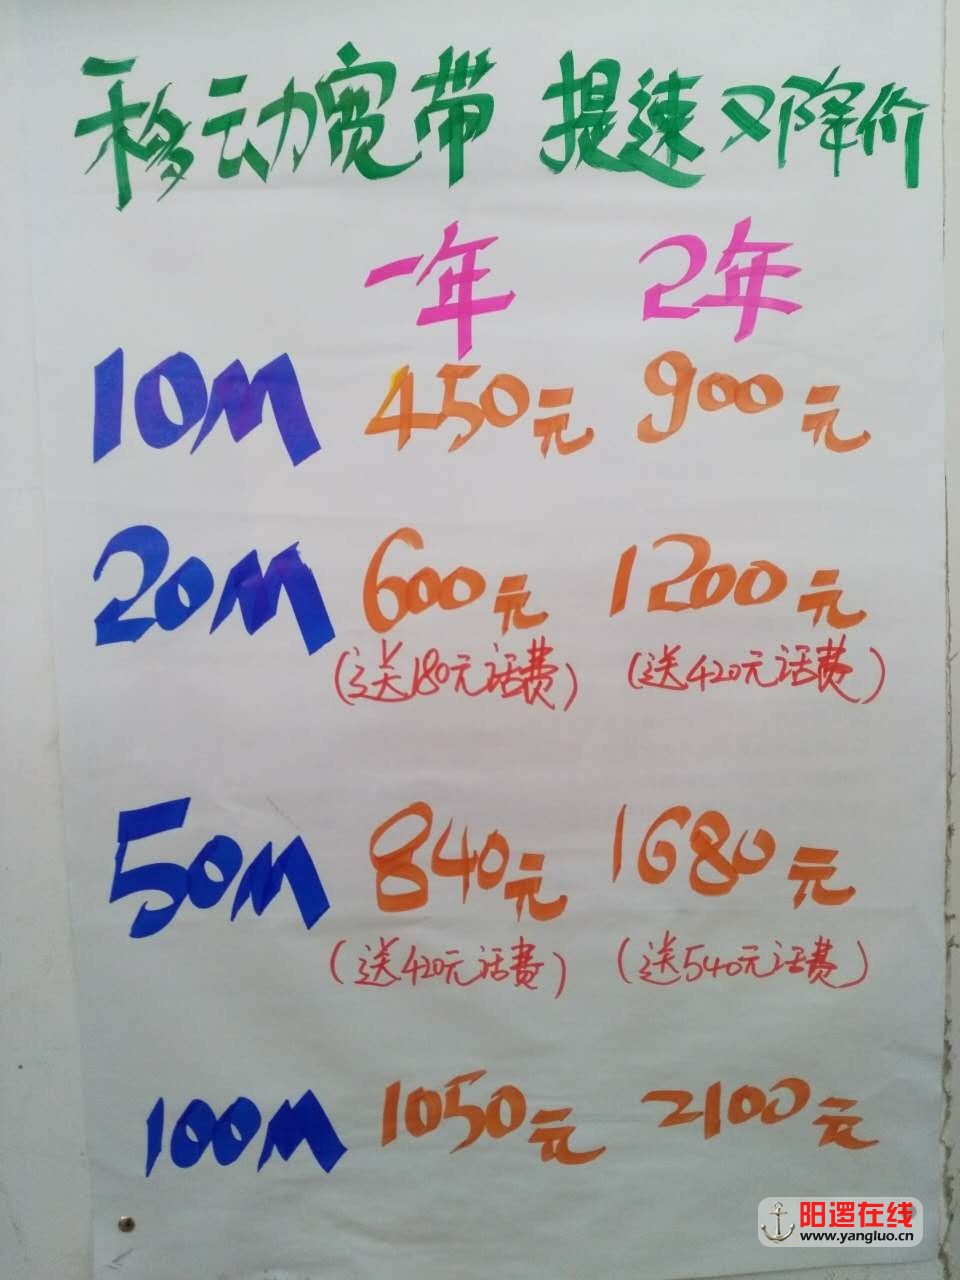 移动宽带 提速又降价
一年 2年
10M 450元 900元
20M 600元 1200元
(送180元话费) (送420元话费)
50M 840元 1680元
(送420元话费) (送540元话费)
100M 1050元 2100元
阳逻在线
www.yangluo.cn